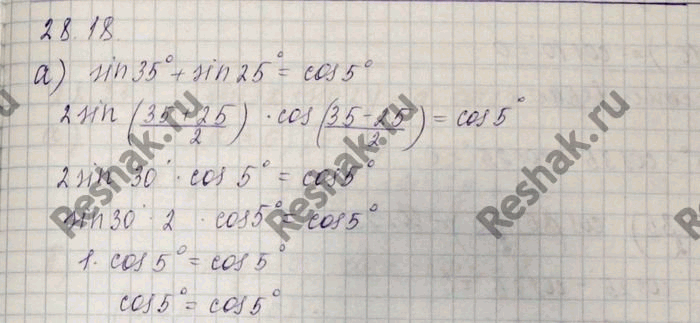 28.18.
а) sin 35° + sin 25° = cos 5°
2 sin (35 + 25 / 2) · cos (35 - 25 / 2) = cos 5°
2 sin 30° · cos 5° = cos 5°
sin 30° · 2 · cos 5° = cos 5°
1 · cos 5° = cos 5°
cos 5° = cos 5°
Reshak.ru
Reshak.ru
Reshak.ru
Reshak.ru